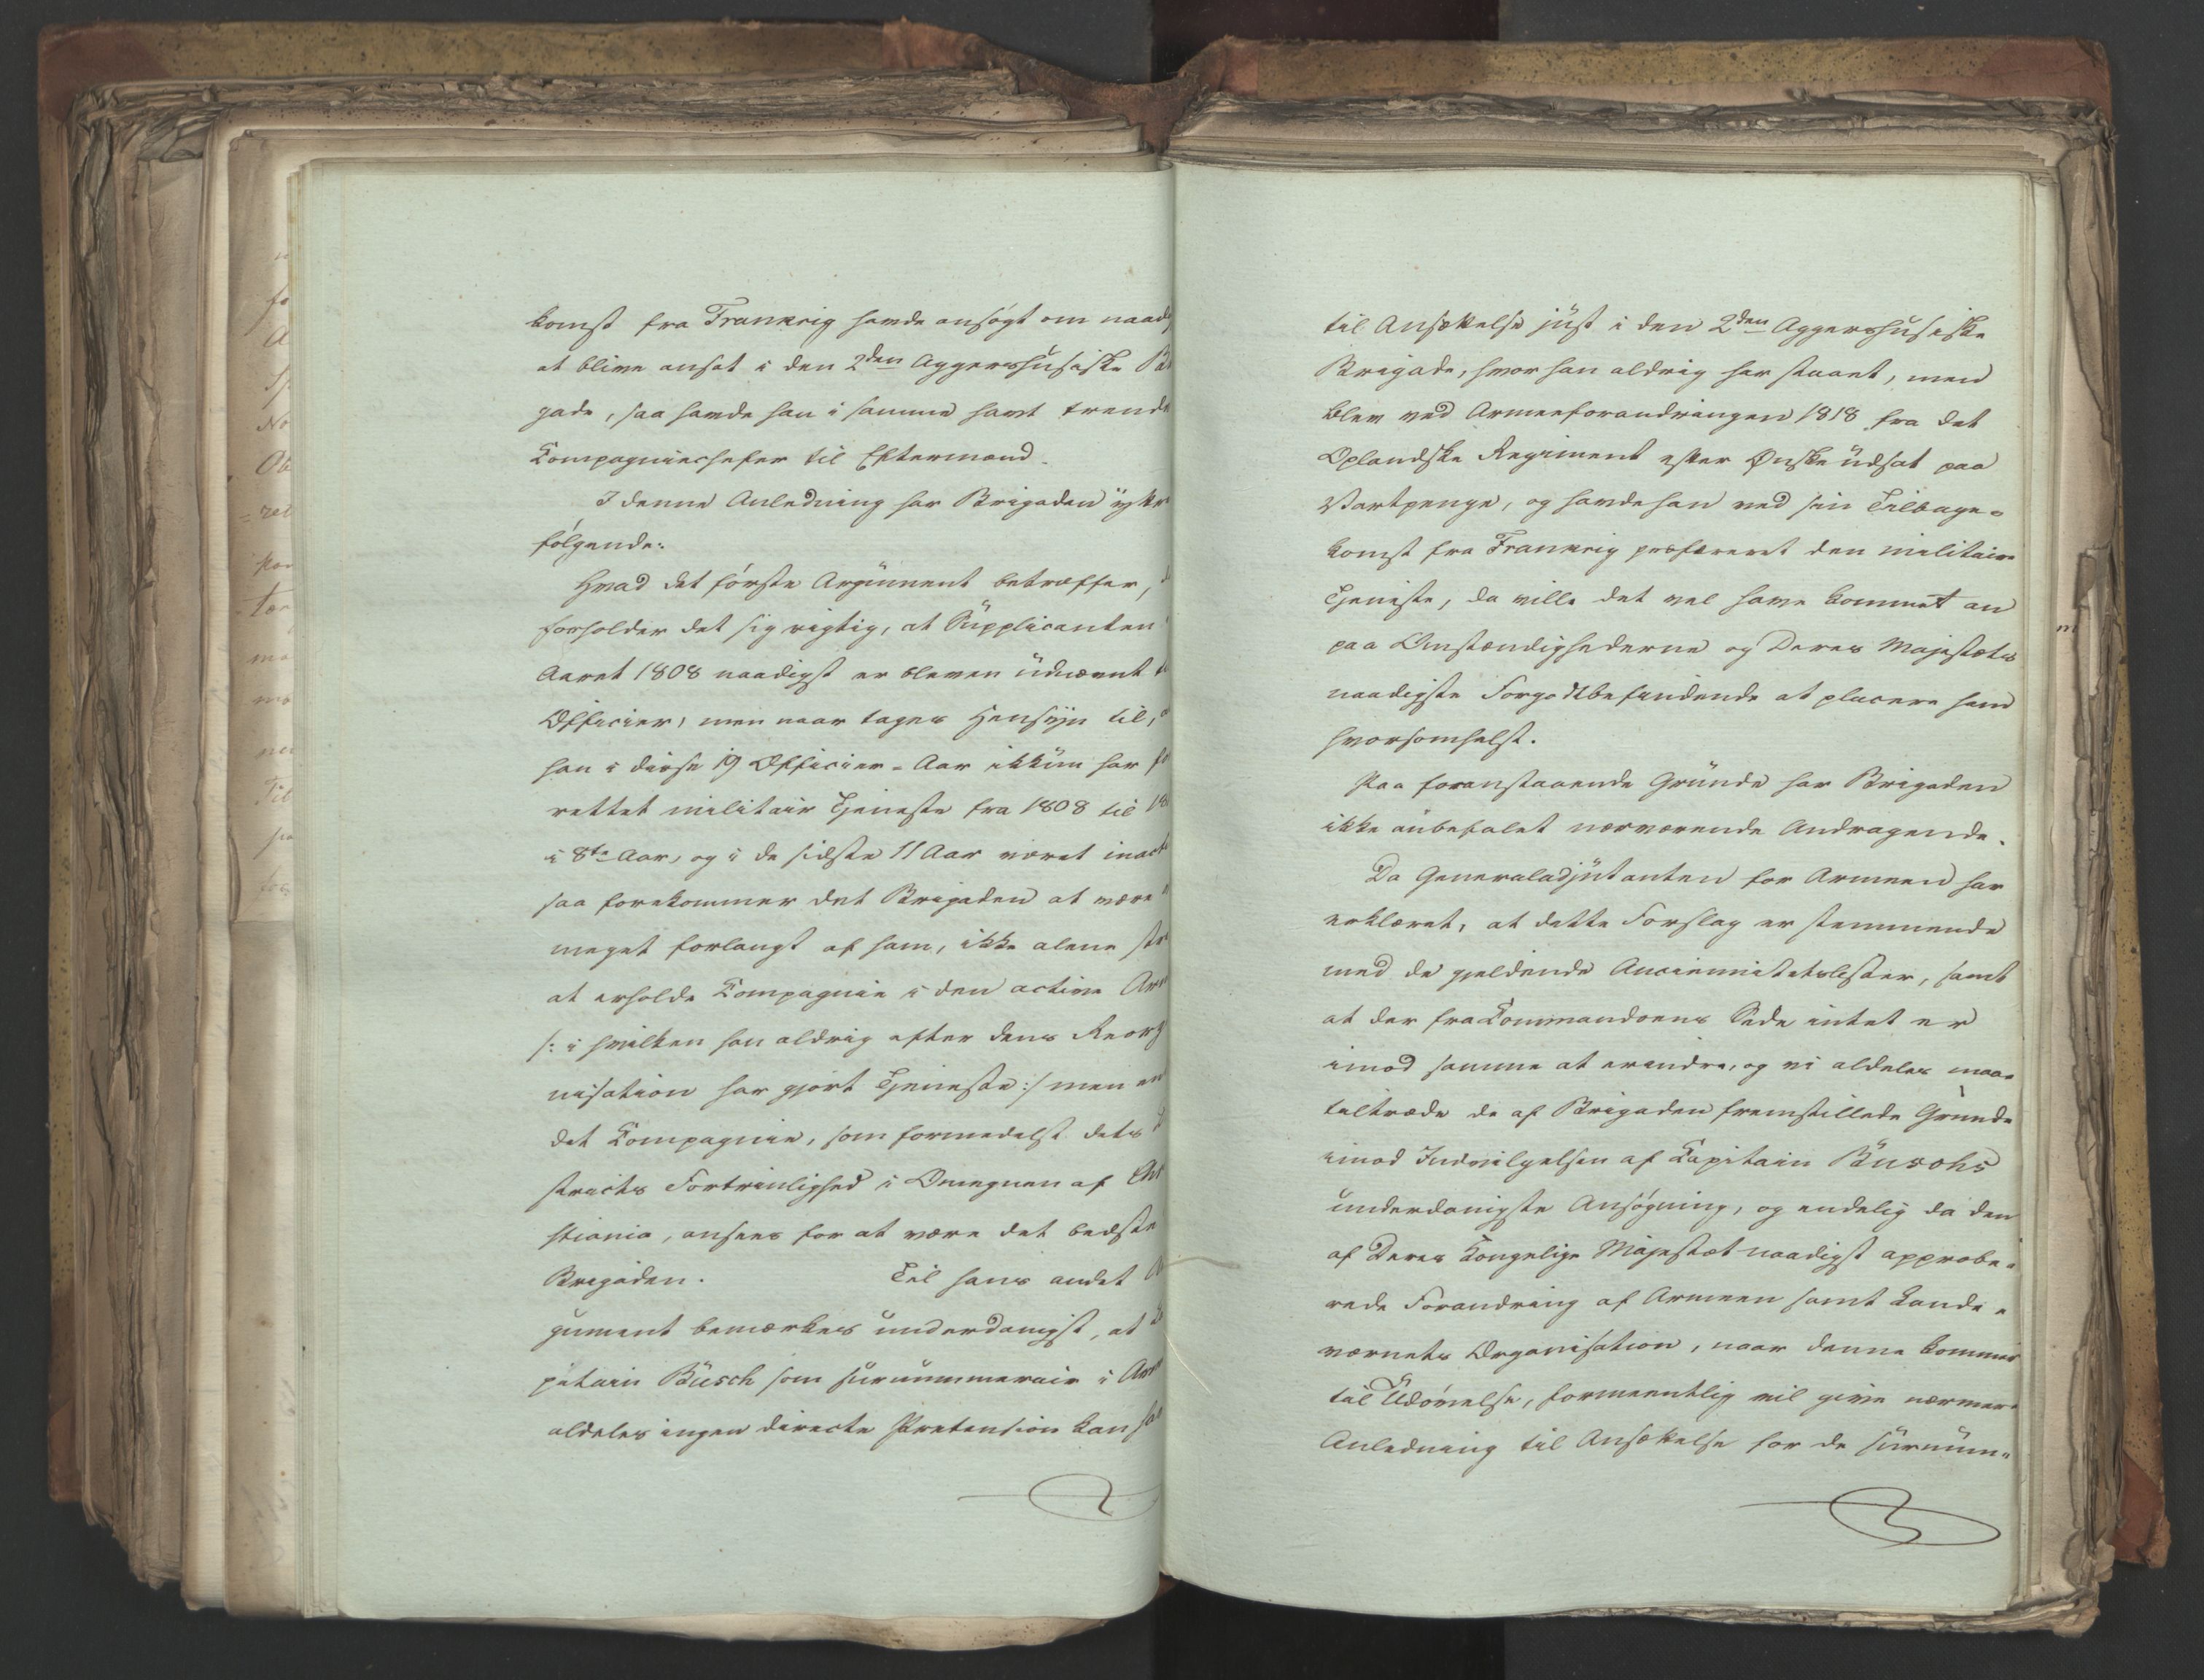 komst fra Frankrig havde ansøgt om naad
at blive ansat i den 2den Aggershusiske
gade, saa havde han i samme havt trende
Compagniechefer til Eftermænd.
I denne Anledning har Brigaden yttr
følgende:
Hvad det første Argument betræffer,
forholder det sig rigtig, at Supplicanten
Aaret 1808 naadigst er bleven udnævnt
Officier, men naar tages Hensyn til,
han i disse 19 Officier-Aar ikkun har for
rettet militair Tjeneste fra 1808 til 18
i 8te Aar, og i de sidste 11 Aar været inact
saa forekommer det Brigaden at være
meget forlangt af ham, ikke alene
at erholde Compagnie i den active Arm
/: i hvilken han aldrig efter dens Reorg
nisation har gjort Tjeneste :/ men en
det Compagnie, som formedelst dets
stricts Fortrinlighed i Omegnen af Chri
stiania, ansees for at være det bedste
Brigaden. Til hans andet A
gument bemærkes underdanigst, at
pitain Büsch som surnummerair i Arm
aldeles ingen directe Prætension kan ha
til Ansættelse just i den 2den Aggershusiske
Brigade, hvor han aldrig har staaet, men
blev ved Armeeforandringen 1818 fra det
Oplandske Regiment efter Ønske udsat paa
Vartpenge, og havde han ved sin Tilbage-
komst fra Frankrig præfereret den militaire
Tjeneste, da ville det vel have kommet an
paa Omstændighederne og Deres Majestæts
naadigste Forgodtbefindende at placere ham
hvorsomhelst.
Paa foranstaaende Grunde har Brigaden
ikke anbefalet nærværende Andragende.
Da Generaladjutanten for Armeen har
erklæret, at dette Forslag er stemmende
med de gjeldende Anciennitetslister, samt
at der fra Commandoens Side intet er
imod samme at erindre, og vi aldeles maae
tiltræde de af Brigaden fremstillede Grunde
imod Indvilgelsen af Capitain Büschs
underdanigste Ansøgning, og endelig da den
af Deres Kongelige Majestæt naadigst approbe-
rede Forandring af Armeen samt Lande-
værnets Organisation, naar denne kommer
til Udøvelse, formeentlig vil give nærmere
Anledning til Ansættelse for de surnum-